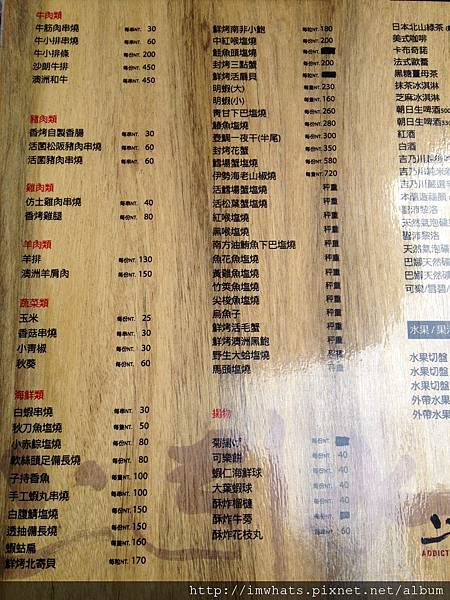 牛肉類
牛筋肉串燒 每串NT. 30
牛小排串燒 每串NT. 60
牛小排條 每份NT. 200
沙朗牛排 每份NT. 450
澳洲和牛 每份NT. 450
豬肉類
香烤自製香腸 每串NT. 30
活菌松阪豬肉串燒 每串NT. 60
活菌豬肉串燒 每串NT. 60
雞肉類
仿土雞肉串燒 每串NT. 40
香烤雞腿 每份NT. 80
羊肉類
羊排 每份NT. 130
澳洲羊肩肉 每串NT. 150
蔬菜類
玉米 每份NT. 25
香菇串燒 每串NT. 30
小青椒 每份NT. 30
秋葵 每份NT. 60
海鮮類
白蝦串燒 每串NT. 30
秋刀魚塩燒 每隻NT. 50
小赤鯮塩燒 每份NT. 80
軟絲頭足備長燒 每份NT. 80
子持香魚 每隻NT. 100
手工蝦丸串燒 每串NT. 100
白腹鯖塩燒 每份NT. 150
透抽備長燒 每份NT. 150
蝦蛄扁 每隻NT. 160
鮮烤北寄貝 每粒NT. 170
鮮烤南非小鮑 每粒NT. 180
中紅喉塩燒 每份NT. 200
鮭魚頭塩燒 每份NT.
封烤三點蟹 每份NT. 200
鮮烤活扇貝 每粒NT.
明蝦(大)
明蝦(小)
青甘下巴塩燒
鯥魚塩燒
壺鯛一夜干(半尾)
封烤花蟹
鱈場蟹塩燒
伊勢海老山椒燒 720
活鱈場蟹塩燒 秤重
活松葉蟹塩燒 秤重
紅喉塩燒 秤重
黑喉塩燒 秤重
南方油鮪魚下巴塩燒 秤重
魚花魚塩燒 秤重
黃雞魚塩燒 秤重
竹莢魚塩燒 秤重
尖梭魚塩燒 秤重
烏魚子 秤重
鮮烤活毛蟹 秤重
鮮烤澳洲黑鮑 秤重
野生大蛤塩燒 秤重
馬頭塩燒 秤重
揚物
可樂餅 每份NT. 40
蝦仁海鮮球 每份NT. 40
大葉蝦球 每份NT. 40
酥炸柳葉魚 每份NT. 40
酥炸牛蒡 每份NT.
酥炸花枝丸 每份NT. 60
日本北山綠茶
美式咖啡
卡布奇諾
法式歐蕾
黑糖薑母茶
抹茶冰淇淋
芝麻冰淇淋
朝日生啤酒330
朝日生啤酒500
紅酒
白酒
天然氣泡礦
天然氣泡礦
巴娜天然礦
巴娜天然礦
可樂/雪碧/
水果 / 果汁
水果切盤
水果切盤
水果切盤
外帶水果
外帶水果
ADDICT
http://imwhats.pixnet.net/blog